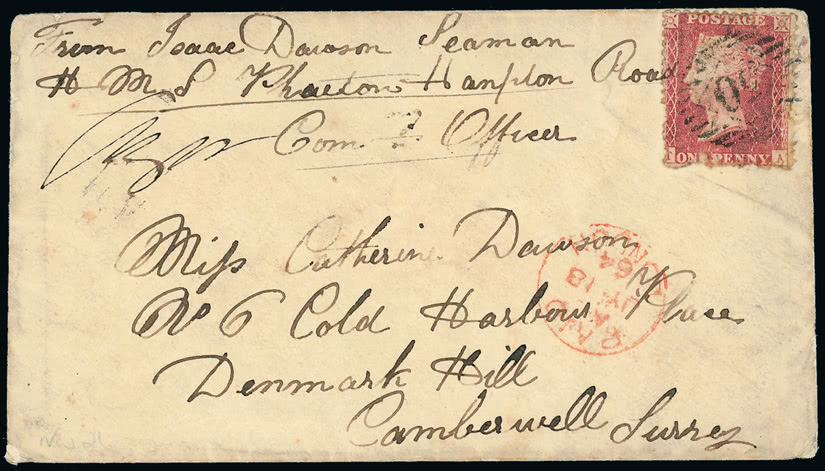 From Isaac Dawson Seaman
H M S Phaeton Hampton Road
Comg Officer
Miss Catherine Dawson
No 6 Cold Harbour Place
Denmark Hill
Camberwell Surrey
POSTAGE
ONE PENNY
I A
LONDON
64
PAID